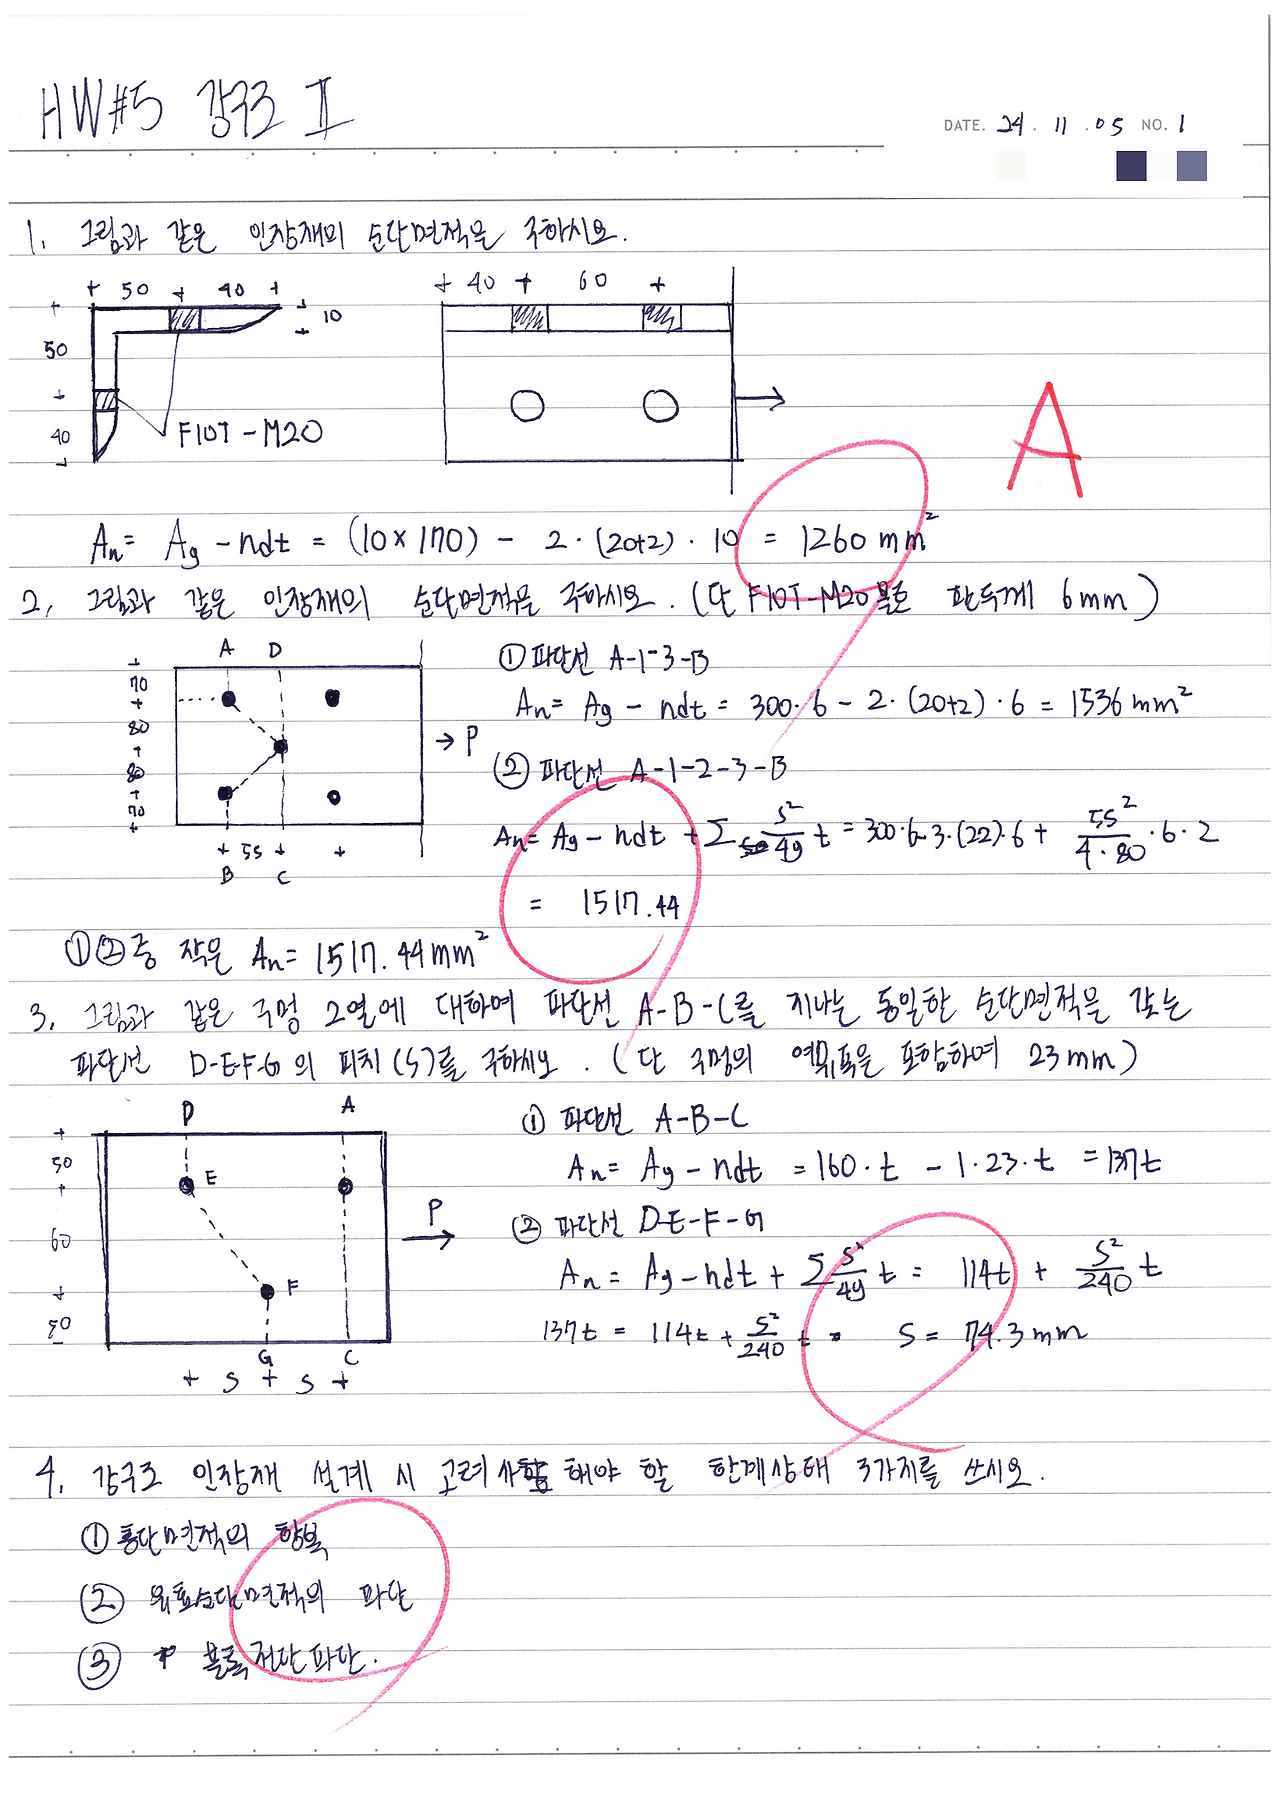 HW#5 강구조 II
DATE. 24 . 11 . 05 NO. 1
1. 그림과 같은 인장재의 순단면적을 구하시오.
50 40
10
50
40
F10T-M20
40 60
A
An = Ag - ndt = (10×170) - 2·(20+2)·10 = 1260 mm²
2. 그림과 같은 인장재의 순단면적을 구하시오. (단 F10T-M20 볼트 판두께 6mm)
A D
70
80
80
70
55
B C
→ P
① 파단선 A-1-3-B
An = Ag - ndt = 300·6 - 2·(20+2)·6 = 1536 mm²
② 파단선 A-1-2-3-B
An = Ag - ndt + Σ s²/4g t = 300·6-3·(22)·6 + 55²/4·80 ·6·2
= 1517.44
①②중 작은 An = 1517.44mm²
3. 그림과 같은 구멍 2열에 대하여 파단선 A-B-C를 지나는 동일한 순단면적을 갖는
파단선 D-E-F-G 의 피치(S)를 구하시오. (단 구멍의 여유폭을 포함하여 23mm)
D A
50
60
50
E
F
G C
S S
P
① 파단선 A-B-C
An = Ag - ndt = 160·t - 1·23·t = 137t
② 파단선 D-E-F-G
An = Ag - ndt + Σ s²/4g t = 114t + S²/240 t
137t = 114t + S²/240 t S = 74.3mm
4. 강구조 인장재 설계 시 고려 해야 할 한계상태 3가지를 쓰시오.
① 총단면적의 항복
② 유효순단면적의 파단
③ 블록전단파단.